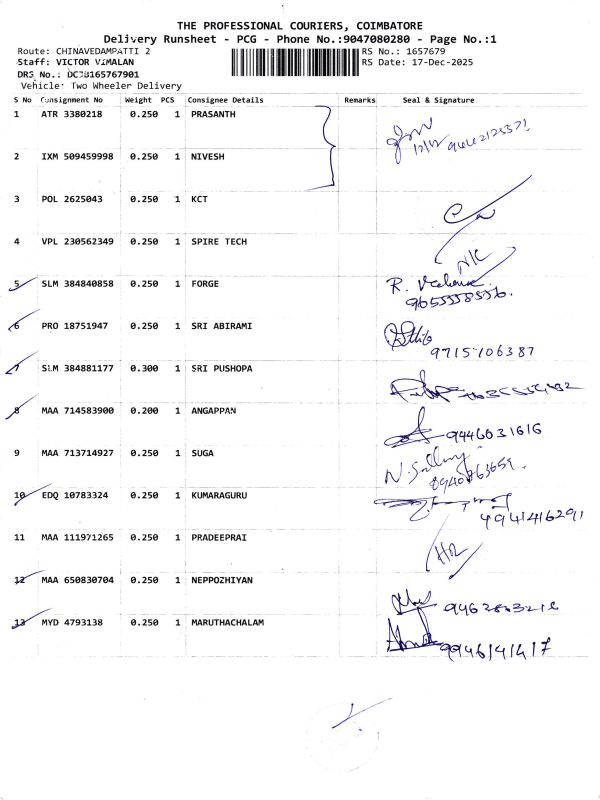 THE PROFESSIONAL COURIERS, COIMBATORE
Delivery Runsheet - PCG - Phone No.:9047080280 - Page No.:1
Route: CHINAVEDAMPATTI 2 RS No.: 1657679
Staff: VICTOR VIMALAN RS Date: 17-Dec-2025
DRS No.: DCJB165767901
Vehicle: Two Wheeler Delivery
S No Consignment No Weight PCS Consignee Details Remarks Seal & Signature
1 ATR 3380218 0.250 1 PRASANTH
2 IXM 509459998 0.250 1 NIVESH
3 POL 2625043 0.250 1 KCT
4 VPL 230562349 0.250 1 SPIRE TECH
5 SLM 384840858 0.250 1 FORGE
6 PRO 18751947 0.250 1 SRI ABIRAMI
9715706387
7 SLM 384881177 0.300 1 SRI PUSHOPA
8 MAA 714583900 0.200 1 ANGAPPAN
9446031616
9 MAA 713714927 0.250 1 SUGA
10 EDQ 10783324 0.250 1 KUMARAGURU
9941416291
11 MAA 111971265 0.250 1 PRADEEPRAI
12 MAA 650830704 0.250 1 NEPPOZHIYAN
13 MYD 4793138 0.250 1 MARUTHACHALAM